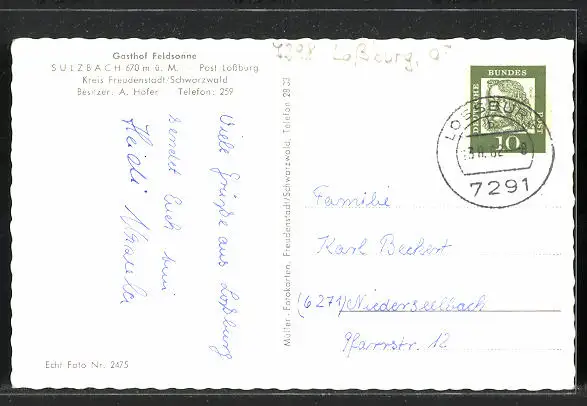 Gasthof Feldsonne
SULZBACH 670 m ü. M. Post Loßburg
Kreis Freudenstadt/Schwarzwald
Besitzer: A. Hofer Telefon: 259
7298 Loßburg,
DEUTSCHE BUNDESPOST
10
LOSSBURG
7291
Viele Grüße aus Loßburg
sendet Euch
Heidi
Müller-Fotokarten, Freudenstadt/Schwarzwald, Telefon 28 33
Familie
Karl Beckert
(6271) Niederseelbach
Pfarrstr. 12
Echt Foto Nr. 2475